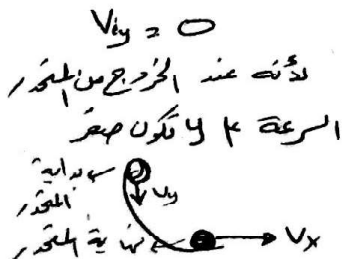 Viy = 0
لأنه عند الخروج من المنحدر
السرعة y تكون صفر
بداية
المنحدر
Vy
نهاية المنحدر
Vx